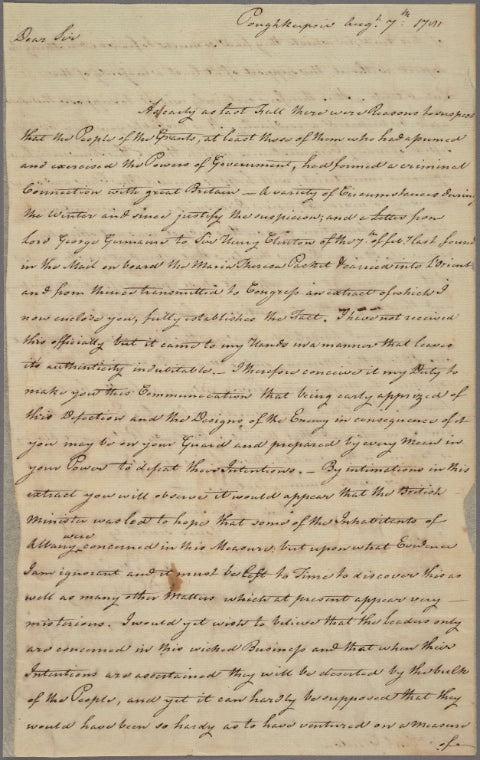 Poughkeepsie Augt. 7th. 1781
Dear Sir
As early as last Fall there were Reasons to suspect
that the People of the Grants, at least those of them who had assumed
and exercised the Powers of Government, had formed a criminal
Connection with great Britain — A variety of Circumstances during
the Winter and since justify the suspicion, and a Letter from
Lord George Germaine to Sir Henry Clinton of the 7th. of feby. last found
in the Mail on board the Maria Theresa Packet & carried into L'Orient
and from thence transmitted to Congress an extract of which I
now enclose you, fully establishes the Fact. I have not received
this officially but it came to my Hands in a manner that leaves
its authenticity indubitable. — I therefore conceive it my Duty to
make you this Communication that being early apprized of
this Defection and the Designs of the Enemy in consequence of it
you may be on your Guard and prepared by every Mean in
your Power to defeat their Intentions. — By intimations in this
extract you will observe it would appear that the British
Minister was led to hope that some of the Inhabitants of
Albany were concerned in this Measure, but upon what Evidence
I am ignorant and it must be left to Time to discover this as
well as many other Matters which at present appear very
misterious. I would yet wish to believe that the leaders only
are concerned in this wicked Business and that when their
Intentions are ascertained they will be deserted by the bulk
of the People, and yet it can hardly be supposed that they
would have been so hardy as to have ventured on a Measure
of